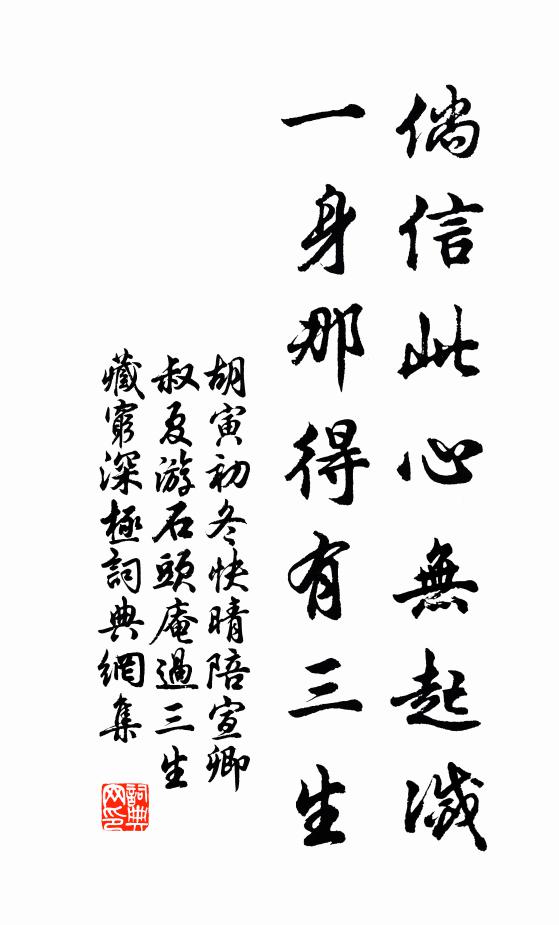 倘信此心無起滅
一身那得有三生
胡寅初冬快晴陪宣卿
叔夏游石頭庵過三生
藏窮深極詞典網集
詞典網印